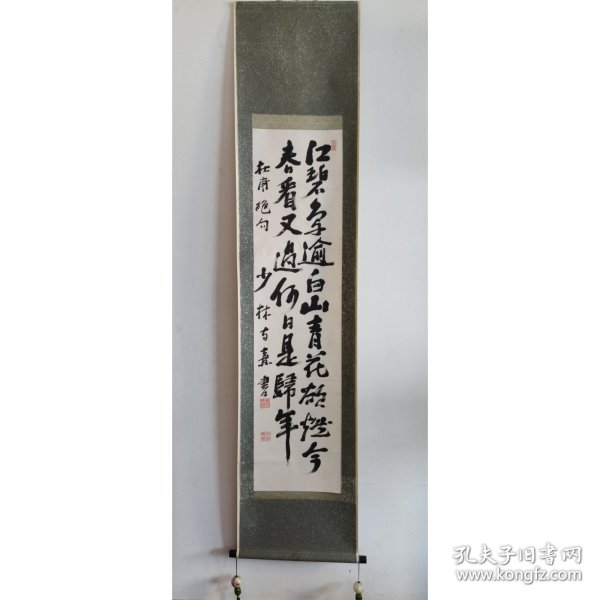 江碧鸟逾白山青花欲燃今
春看又過何日是歸年
杜甫絶句
少林寺 書
孔夫子旧书网
www.kongfz.com